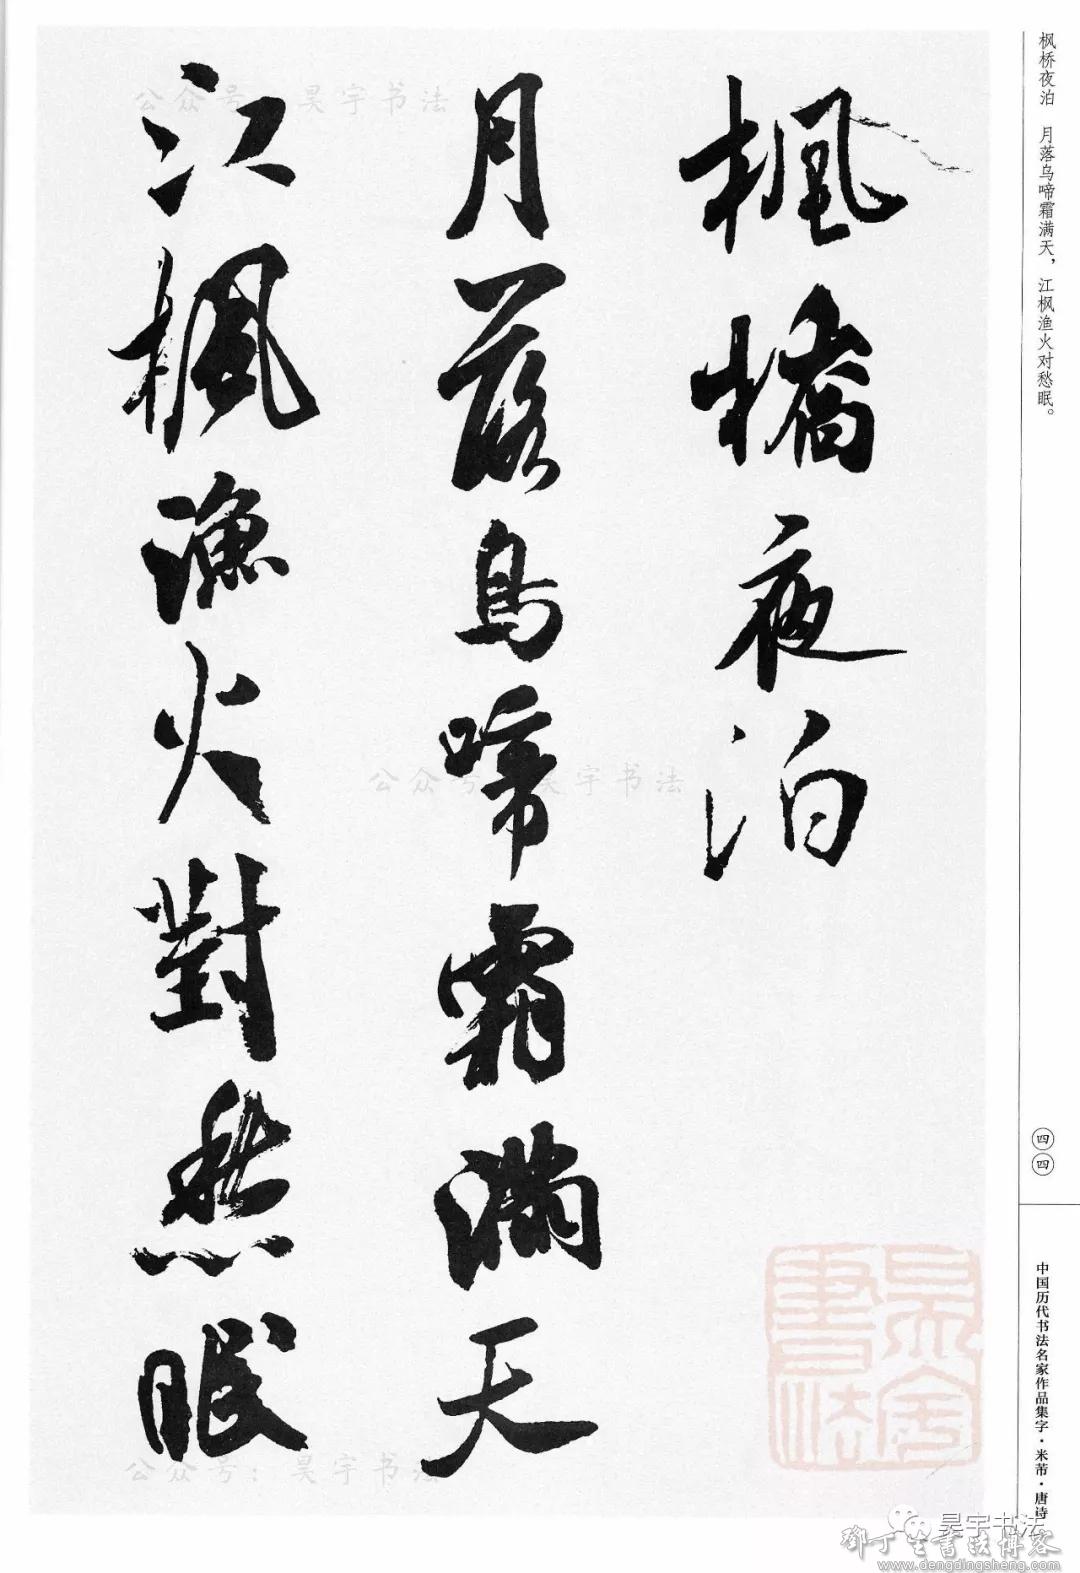 枫桥夜泊　月落乌啼霜满天，江枫渔火对愁眠。
楓橋夜泊
月落烏啼霜滿天
江楓漁火對愁眠
四四
中国历代书法名家作品集字·米芾·唐诗
公众号：昊宇书法
公众号：昊宇书法
公众号：昊宇书法
昊宇書法
昊宇书法
鄧丁生書法博客
www.dengdingsheng.com